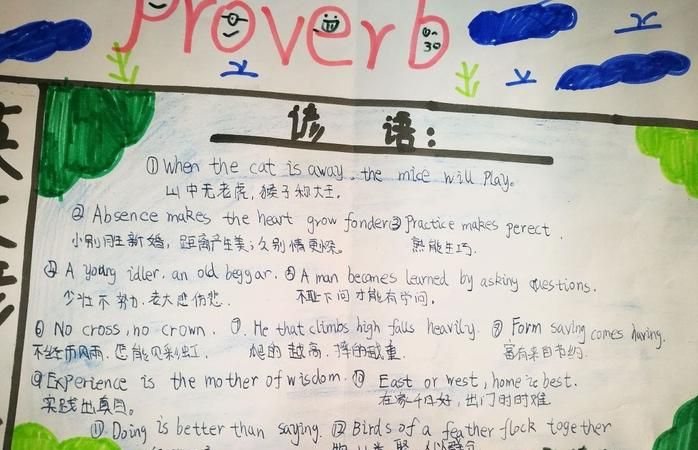 Proverb
谚语:
① When the cat is away, the mice will play.
山中无老虎,猴子称大王.
② Absence makes the heart grow fonder ③ Practice makes perect.
小别胜新婚,距离产生美;久别情更深. 熟能生巧.
④ A young idler, an old beggar. ⑤ A man becomes learned by asking questions.
少壮不努力,老大悲伤悲. 不耻下问才能有学问.
⑥ No cross, no crown. ⑦. He that climbs high falls heavily. ⑧ Form saving comes having.
不经历风雨,怎能见彩虹. 爬的越高,摔的越重. 富有来自节约.
⑨ Experience is the mother of wisdom. ⑩ East or west, home is best.
实践出真知. 在家千日好,出门时时难.
⑪ Doing is better than saying. ⑫ Birds of a feather flock together